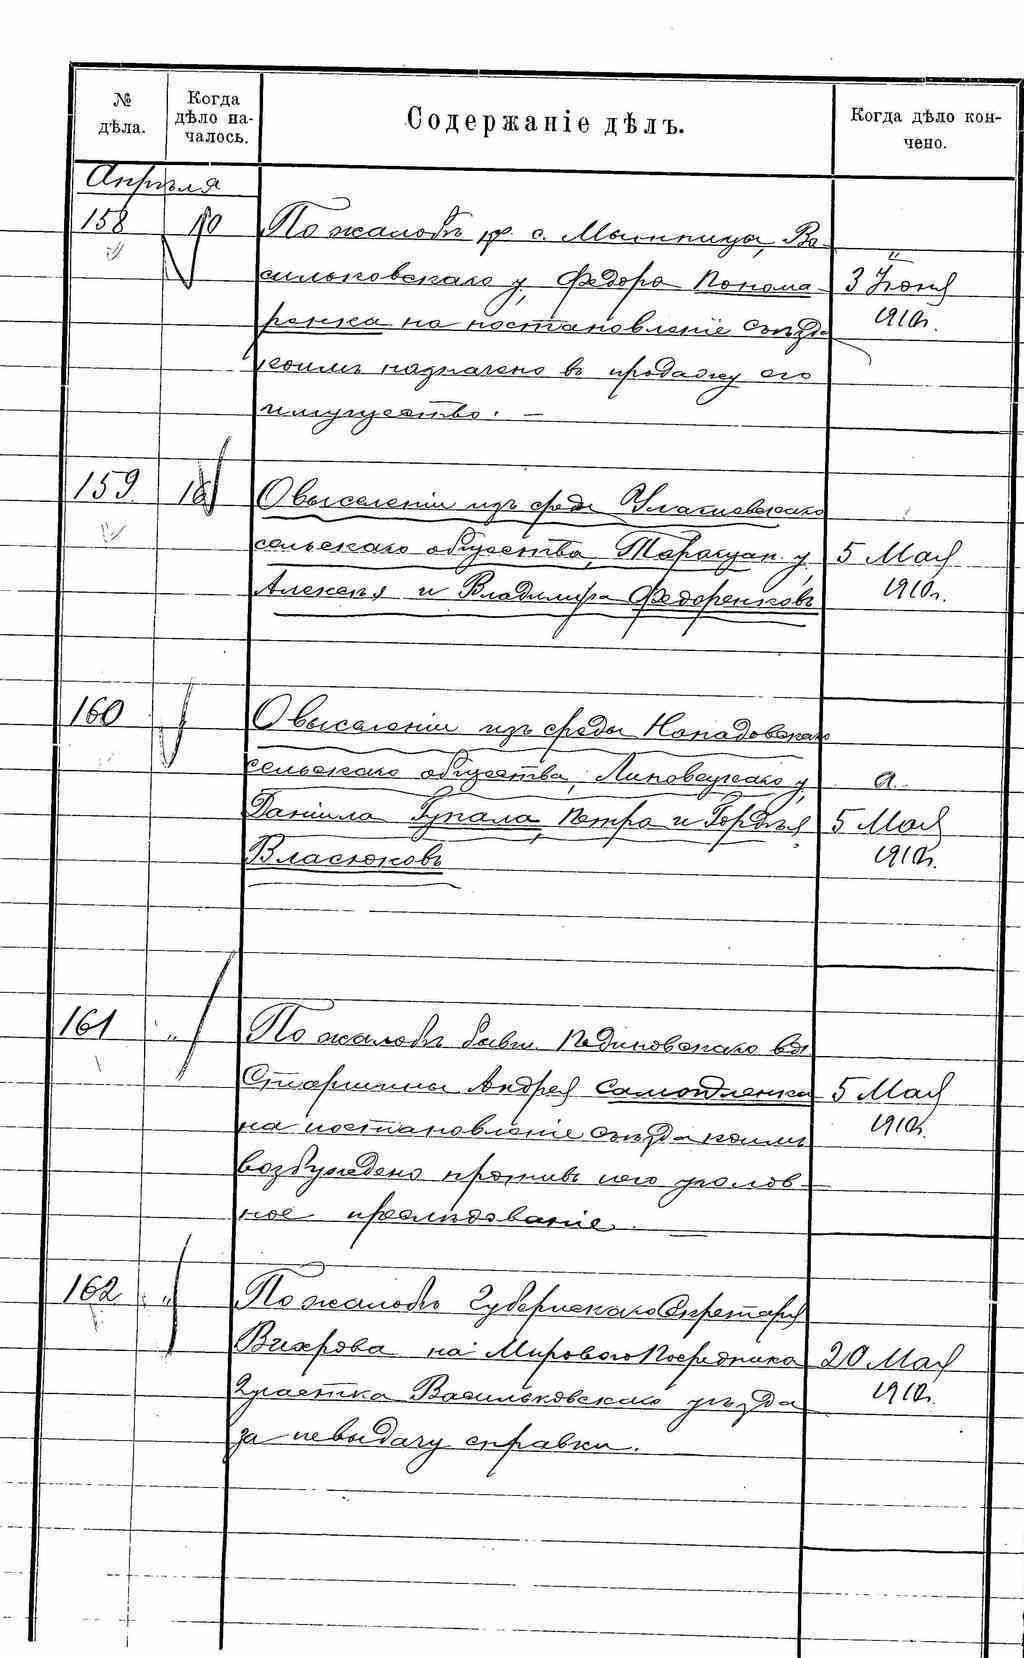 № дѣла.
Когда дѣло на-чалось.
Содержаніе дѣлъ.
Когда дѣло кон-чено.
Апрѣля
158 10 По жалобѣ кр. с. Мытницы, Ва-
сильковскаго у, Федора Понома- 3 Іюня
ренка на постановленіе съѣзда 1910г.
коимъ назначено въ продажу его
имущество. —
159 16 О выселеніи изъ среды сельскаго
сельскаго общества, Таращан. у. 5 Мая
Алексѣя и Владимира Федоренковъ 1910г.
160 О выселеніи изъ среды Нападовскаго
сельскаго общества, Липовецкаго у, а.
Даніила Гупала, Петра и Гордѣя 5 Мая
Власюковъ 1910г.
161 „ По жалобѣ бывш. вол.
Старшины Андрея Самойленка 5 Мая
на постановленіе съѣзда коимъ 1910г.
возбуждено противъ него уголов-
ное преслѣдованіе. —
162 „ По жалобѣ Губернскаго Секретаря
Вихрова на Мирового Посредника 20 Мая
2 участка Васильковскаго уѣзда 1910г.
за невыдачу справки.